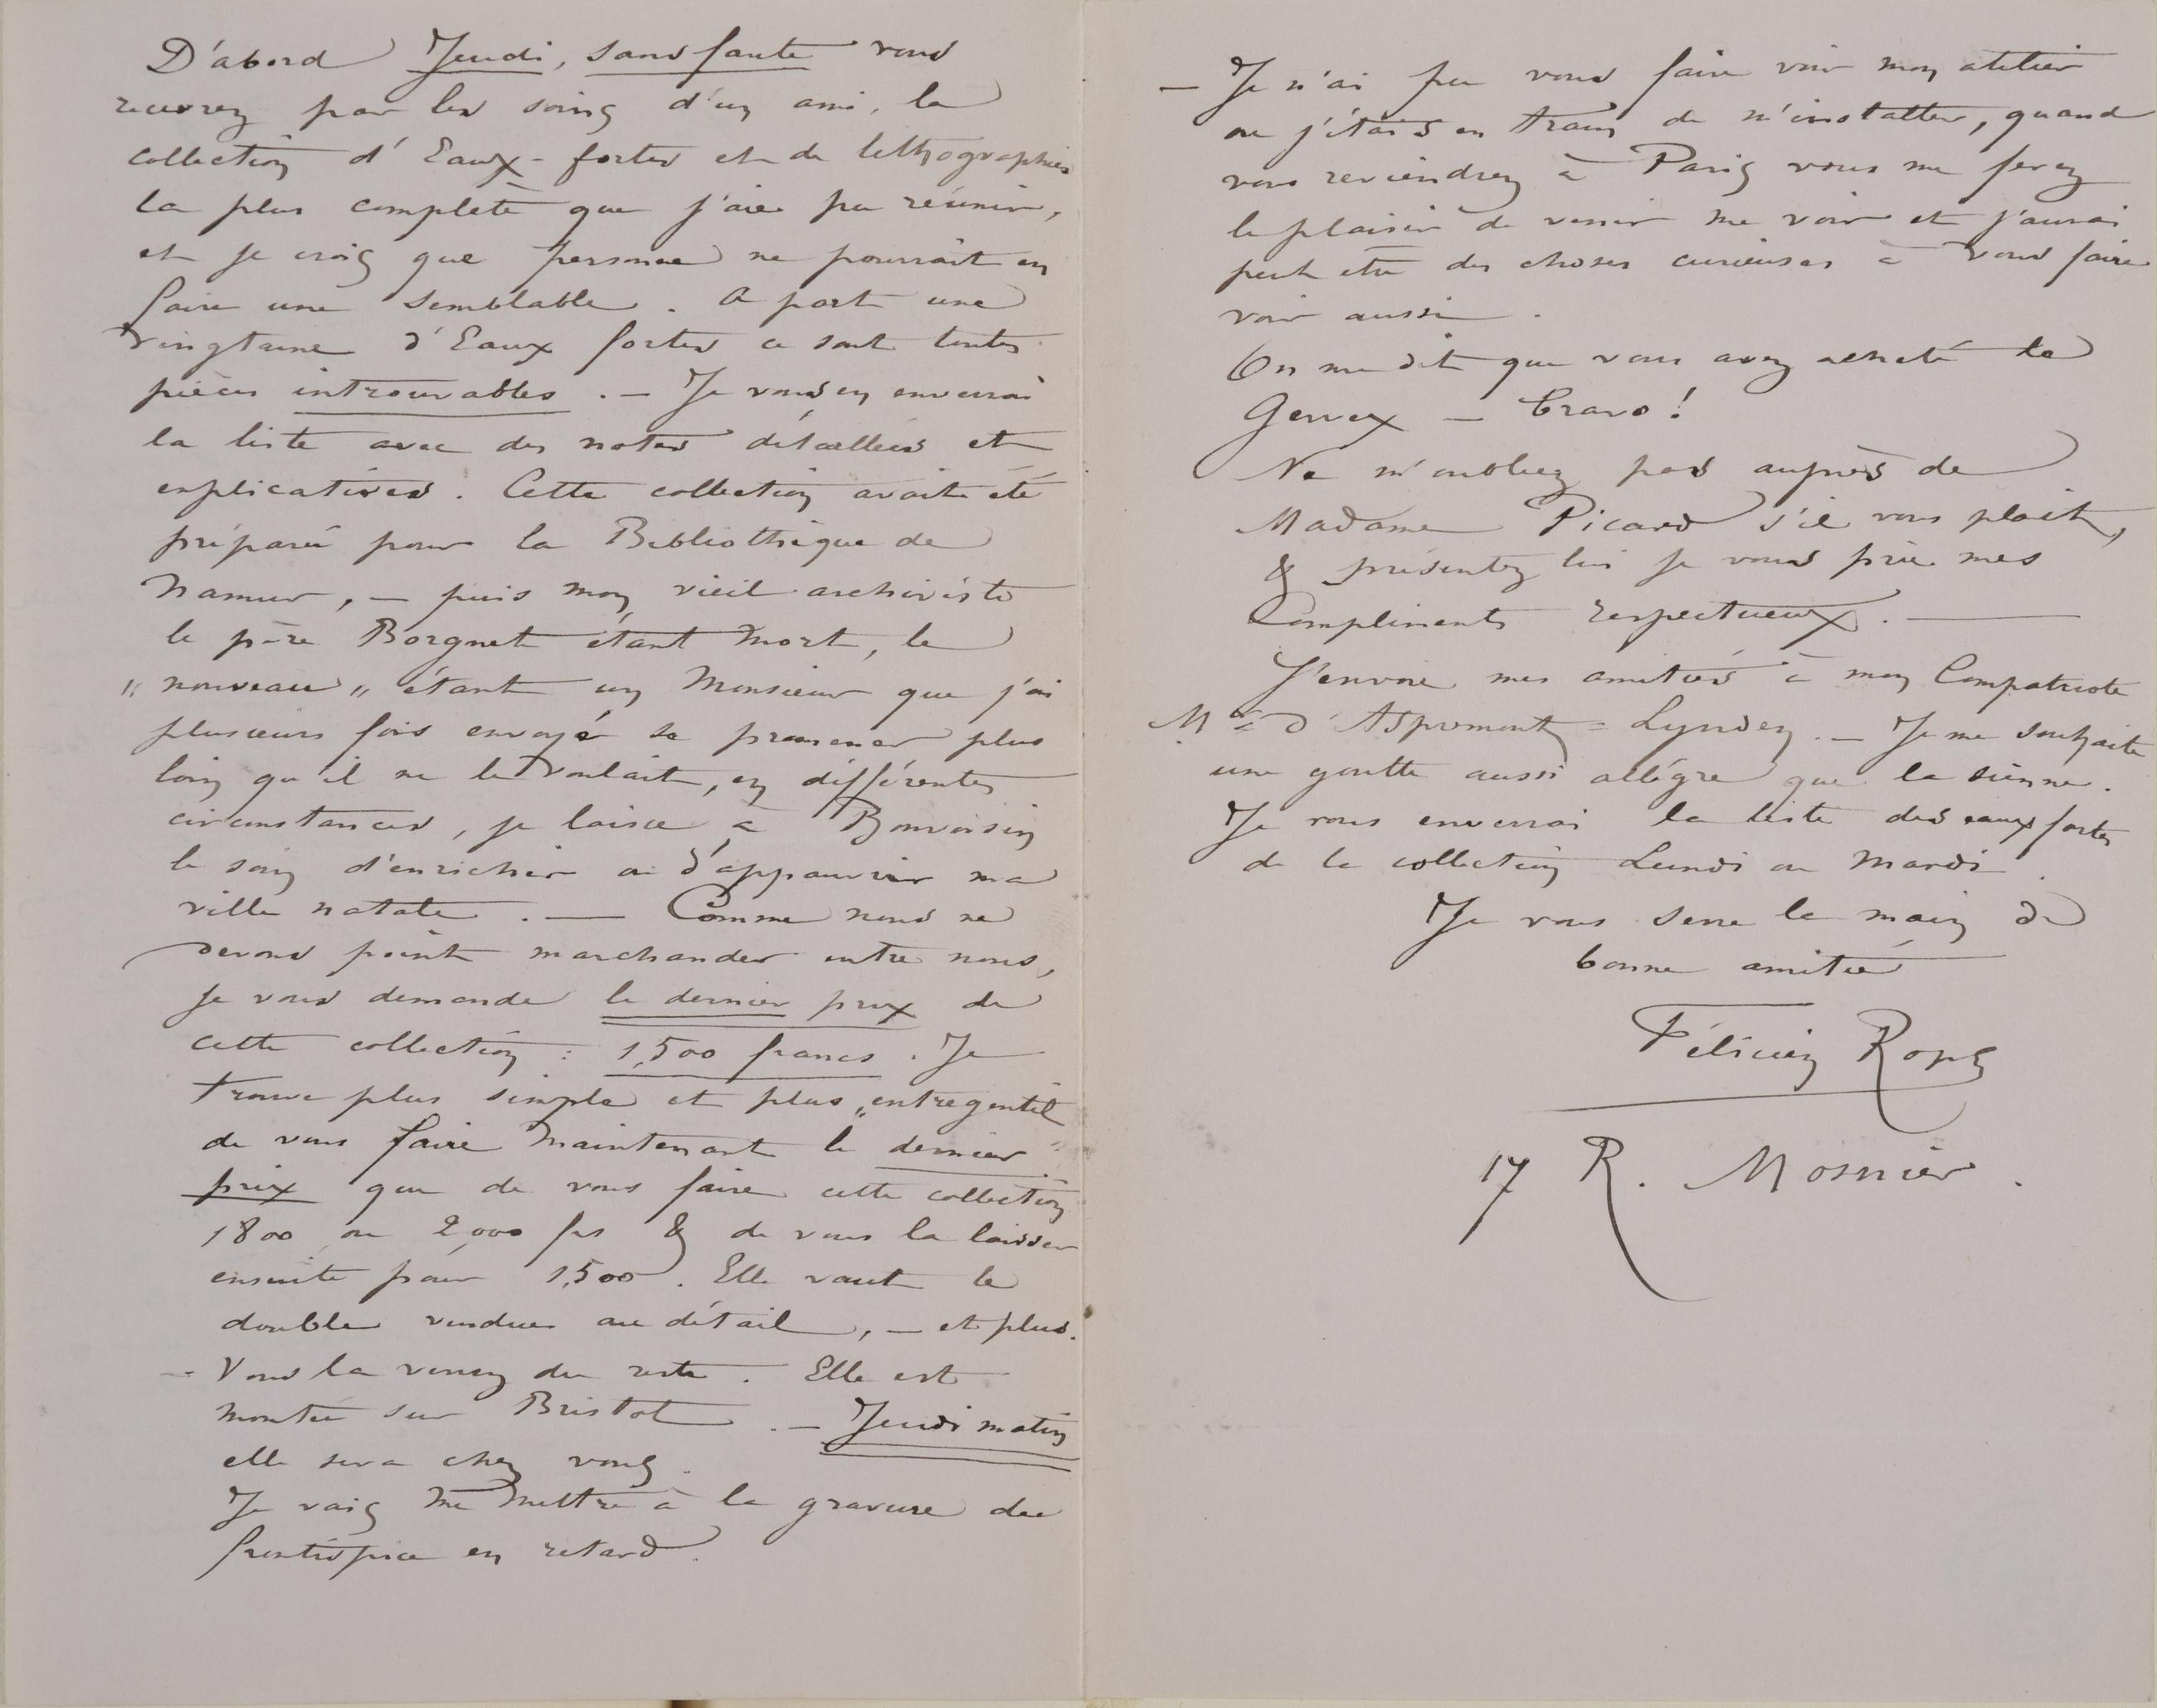 D'abord Jeudi, sans faute vous
recevrez par les soins d'un ami, la
collection d'Eaux-fortes et de lithographies
la plus complète que j'aie pu réunir,
et je crois que personne ne pourrait en
faire une semblable. A part une
vingtaine d'Eaux fortes ce sont toutes
pièces introuvables. — Je vous en enverrai
la liste avec des notes détaillées et
explicatives. Cette collection avait été
préparée pour la Bibliothèque de
Namur, — puis mon vieil archiviste
le père Borgnet étant mort, le
„ nouveau „ étant un Monsieur que j'ai
plusieurs fois envoyé se promener plus
loin qu'il ne le voulait, en différentes
circonstances, je laisse à Bonvoisin
le soin d'enrichir ou d'appauvrir ma
ville natale. — Comme nous ne
devons point marchander entre nous,
je vous demande le dernier prix de
cette collection : 1,500 francs. Je
trouve plus simple et plus „entregentil"
de vous faire maintenant le dernier
prix que de vous faire cette collection
1800 ou 2,000 frs & de vous la laisser
ensuite pour 1,500. Elle vaut le
double vendue au détail, — et plus.
— Vous la verrez du reste. Elle est
montée sur Bristol. — Jeudi matin
elle sera chez vous.
Je vais me mettre à la gravure du
frontispice en retard.
— Je n'ai pu vous faire voir mon atelier
ou j'étais en train de m'installer, quand
vous reviendrez à Paris vous me ferez
le plaisir de venir me voir et j'aurai
peut etre des choses curieuses à vous faire
voir aussi.
On me dit que vous avez acheté le
Gervex — bravo!
Ne m'oubliez pas auprès de
Madame Picard s'il vous plait,
& présentez lui je vous prie mes
Compliments respectueux. —
J'envoie mes amitiés à mon Compatriote
Mr d'Aspremont=Lynden. — Je me souhaite
une goutte aussi allégre que la sienne.
Je vous enverrai la liste des eaux fortes
de la collection Lundi ou Mardi.
Je vous serre la main de
bonne amitié
Félicien Rops
17 R. Mosnier.